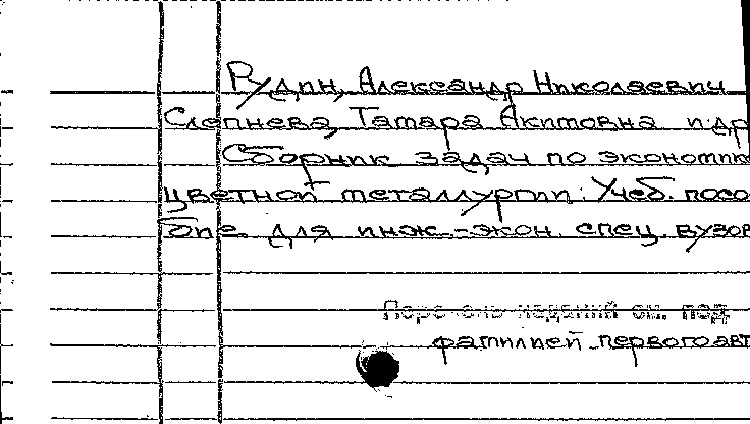 Рудин, Александр Николаевич
Слепнева, Татара Акимовна и др
Сборник задач по экономик
цветной металлургии: Учеб. посо
бие для инж.-экон спец. вузов
Перечень изданий см. под
фамилией первого авт